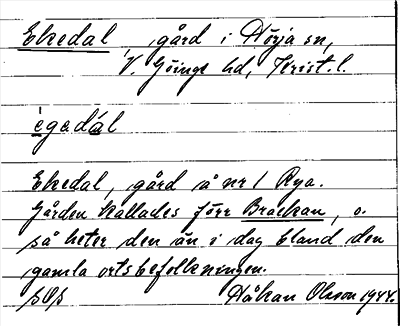 Ekedal, gård i Hörja sn,
V. Göinge hd, Krist. l.
ègedàl
Ekedal, gård å nr 1 Rya.
Gården kallades förr Brackan, o.
så heter den än i dag bland den
gamla ortsbefolkningen.
Håkan Olsson 1944.